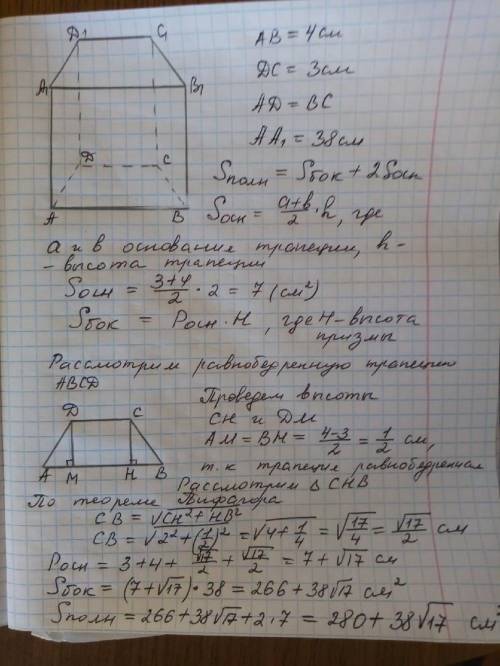 D1 C1
AB = 4см
DC = 3см
A1 B1
AD = BC
AA₁ = 38см
D C
Sполн = Sбок + 2Sосн
A B
Sосн = a+b/2 · h, где
a и b основание трапеции, h-
-высота трапеции
Sосн = 3+4/2 · 2 = 7 (см²)
Sбок = Pосн · H, где H-высота
призмы
Рассмотрим равнобедренную трапецию
ABCD
Проведем высоты
CH и DM
D C
AM = BH = 4-3/2 = 1/2 см,
A M H B
т.к трапеция равнобедренная
Рассмотрим Δ CHB
По теореме Пифагора
CB = √CH² + HB²
CB = √2² + (1/2)² = √4 + 1/4 = √17/4 = √17/2 см
Pосн = 3+4+ √17/2 + √17/2 = 7 + √17 см
Sбок = (7+√17) · 38 = 266 + 38√17 см²
Sполн = 266 + 38√17 + 2·7 = 280 + 38√17 см²